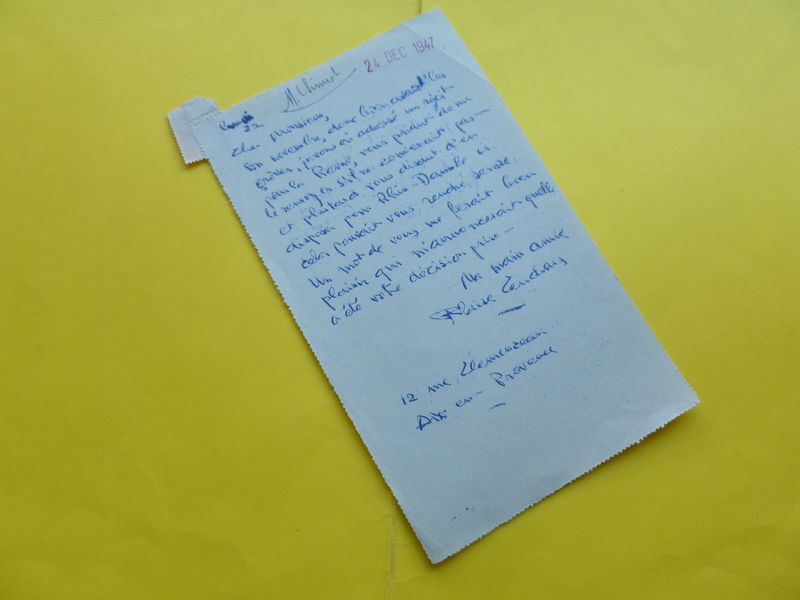 24 DEC 1947
22
Cher Monsieur,
En novembre, donc bien avant les
grèves, je vous ai adressé un récit
pour la Revue, vous priant de me
le renvoyer s'il ne convenait pas—
et plus tard vous disant d'en
disposer pour
cela pouvait vous rendre service.
Un mot de vous me ferait bien
plaisir qui m'annoncerait quelle
a été votre décision prise—
Ma main amie
Blaise Cendrars
12 rue Clemenceau
Aix-en-Provence